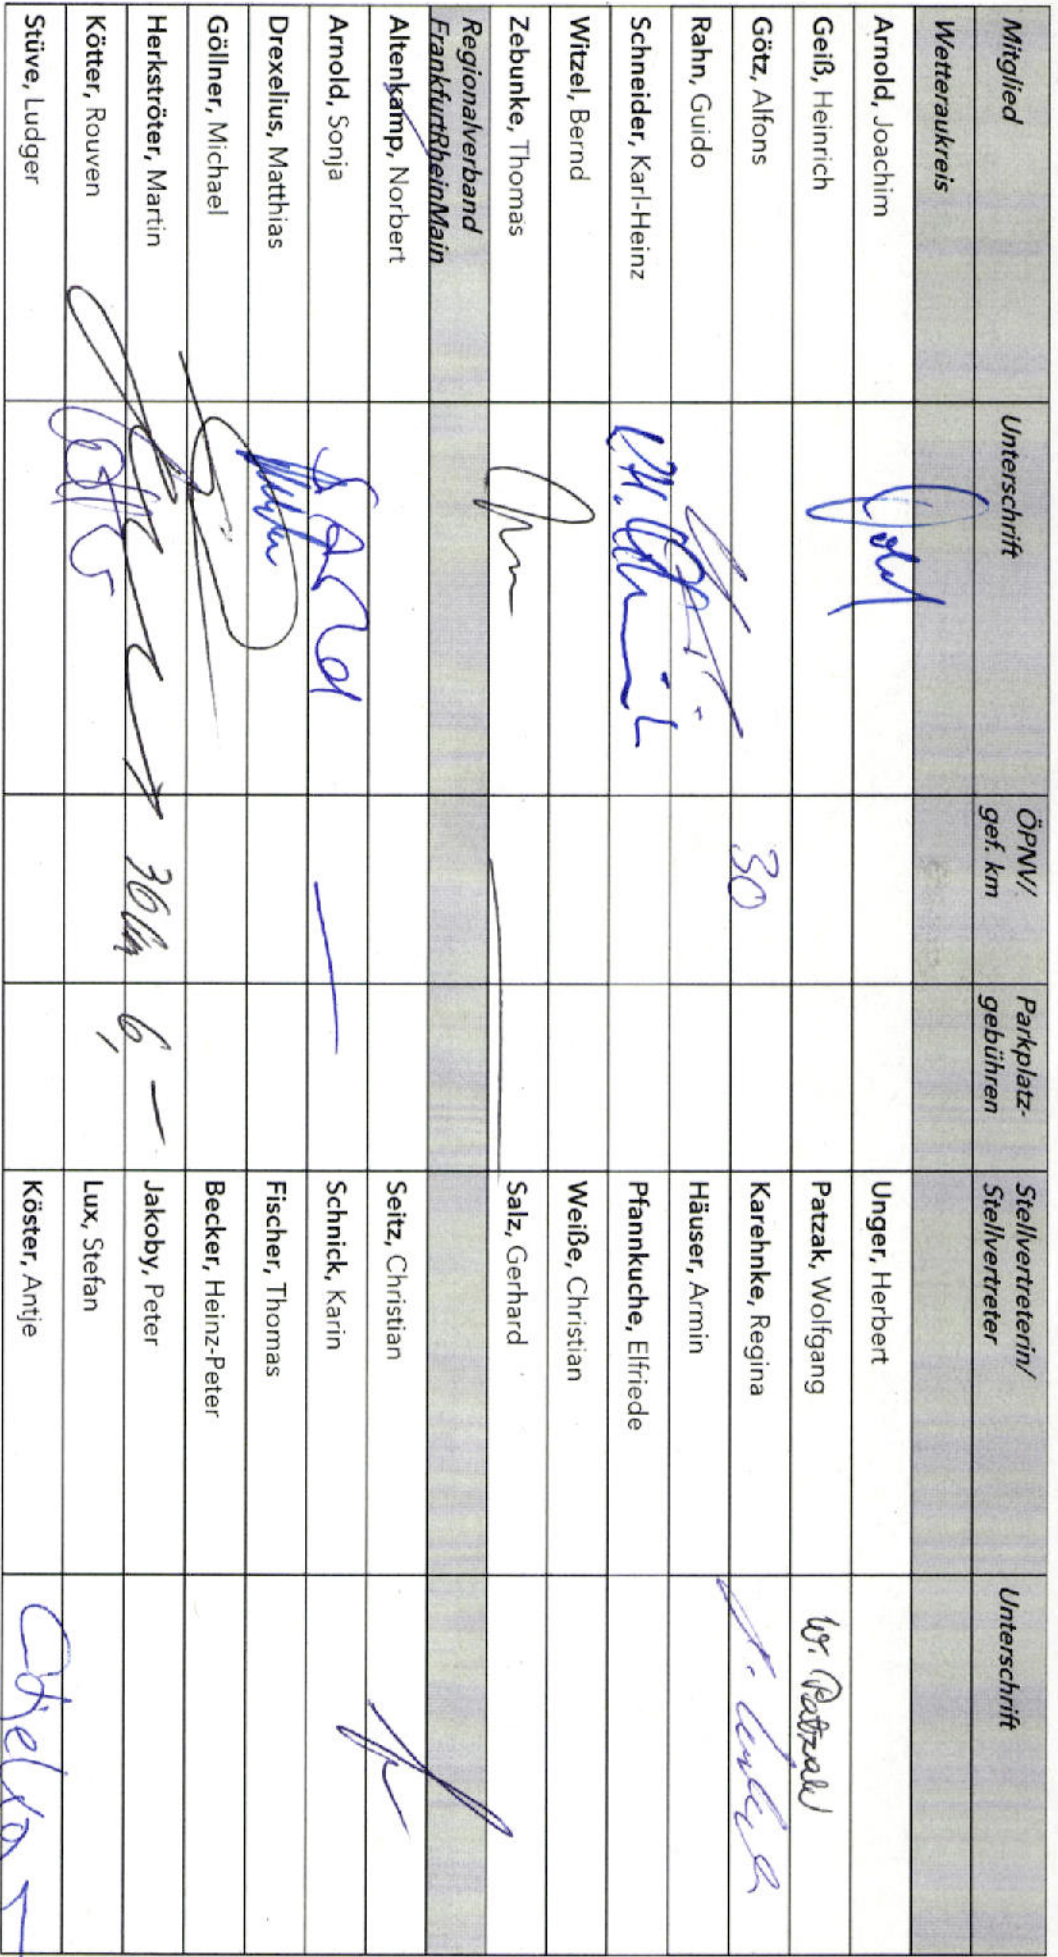 Mitglied Unterschrift ÖPNV/ gef. km Parkplatz- gebühren Stellvertreterin/ Stellvertreter Unterschrift
Wetteraukreis
Arnold, Joachim Unger, Herbert
Geiß, Heinrich Patzak, Wolfgang W. Patzak
Götz, Alfons 30 Karehnke, Regina
Rahn, Guido Häuser, Armin
Schneider, Karl-Heinz Pfannkuche, Elfriede
Witzel, Bernd Weiße, Christian
Zebunke, Thomas Salz, Gerhard
Regionalverband
FrankfurtRheinMain
Altenkamp, Norbert Seitz, Christian
Arnold, Sonja Schnick, Karin
Drexelius, Matthias Fischer, Thomas
Göllner, Michael Becker, Heinz-Peter
Herkströter, Martin 36 km 6,- Jakoby, Peter
Kötter, Rouven Lux, Stefan
Stüve, Ludger Köster, Antje